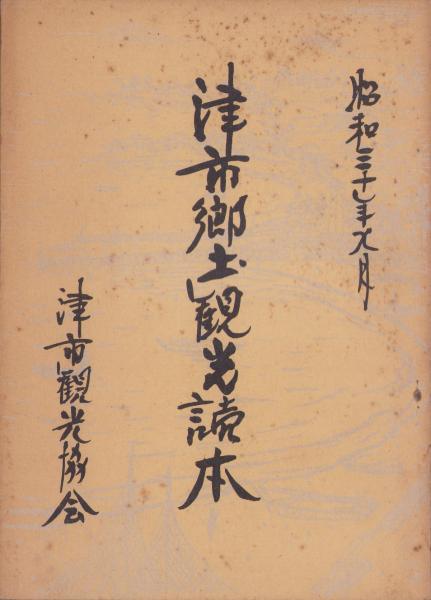 昭和三十年九月
津市郷土観光読本
津市観光協会